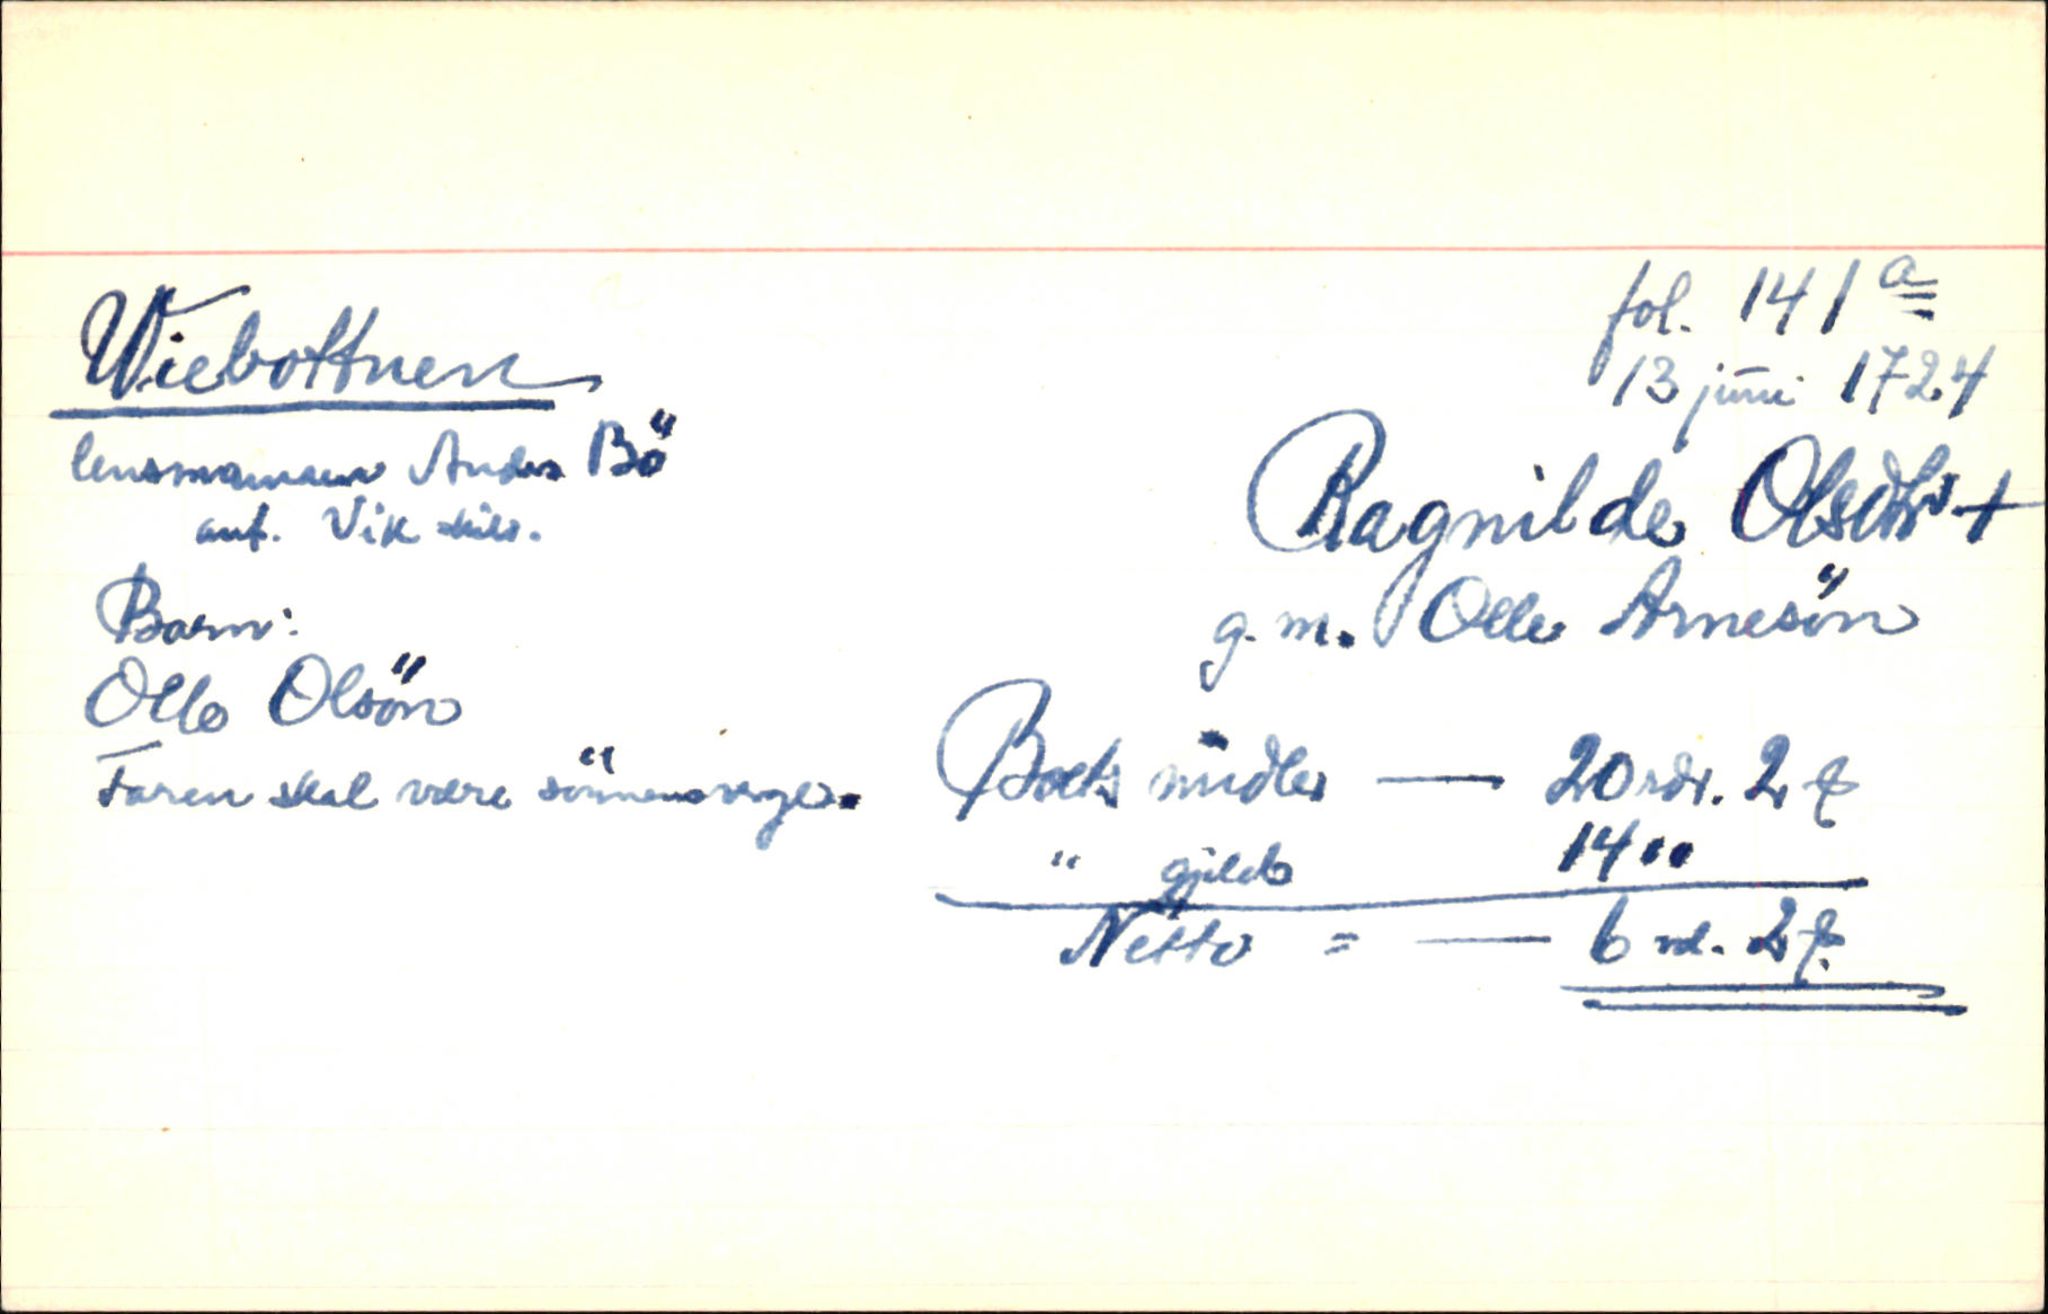 fol. 141 a
13 juni 1724
Wiebottnen
lensmannen Anders Bö
ant. Vik skibr.
Ragnilde Olsdtr +
g. m. Olle Arnesön
Barn:
Olle Olsön
Faren skal være sönnens verge.
Boets midler — 20 rdr. 2
" gjeld 14 " "
Netto = — 6 rd. 2